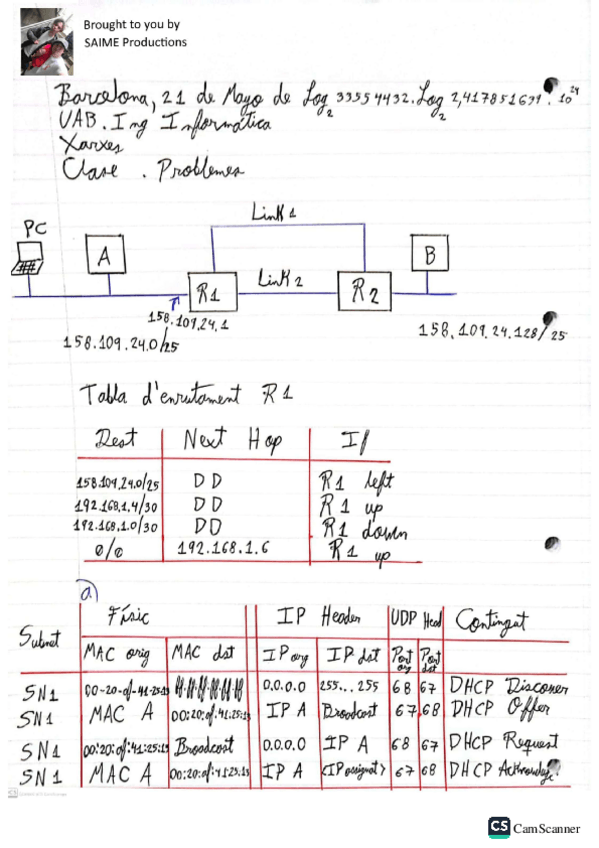 Brought to you by
SAIME Productions
Barcelona, 21 de Mayo de Log₂ 33554432. Log₂ 2,417851639 · 10²⁴
UAB. Ing Informática
Xarxes
Clase . Problemes
Link 1
PC
A
B
R1
Link 2
R2
158.109.24.1
158.109.24.0/25
158.109.24.128/25
Tabla d'enrutament R1
Dest Next Hop If
158.109.24.0/25 DD R1 left
192.168.1.4/30 DD R1 up
192.168.1.0/30 DD R1 down
0/0 192.168.1.6 R1 up
a)
Subnet Físic IP Header UDP Head Contingut
MAC orig MAC dst IP org IP dst Port org Port dst
SN1 00-20-0f-41-25-15 ff-ff-ff-ff-ff-ff 0.0.0.0 255...255 68 67 DHCP Discover
SN1 MAC A 00:20:0f:41:25:15 IP A Broadcast 67 68 DHCP Offer
SN1 00:20:0f:41:25:15 Broadcast 0.0.0.0 IP A 68 67 DHCP Request
SN1 MAC A 00:20:0f:41:25:15 IP A <IP assignat> 67 68 DHCP Acknowledge
CS CamScanner